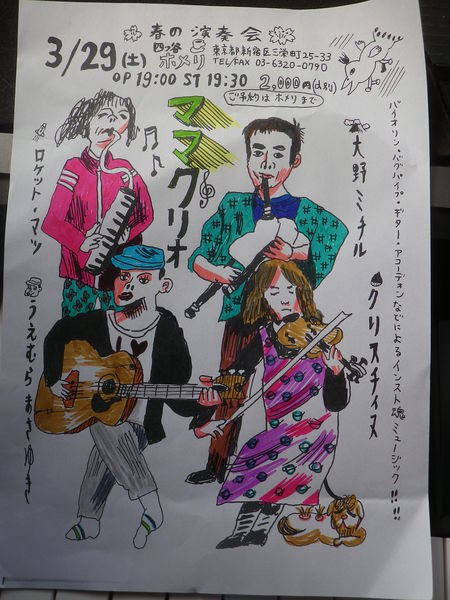 3/29(土)
春の演奏会
四ッ谷
ホメリ
東京都新宿区三栄町25-33
TEL/FAX 03-6320-0790
OP 19:00 ST 19:30
2,000円
ご予約は ホメリ まで
ママクリオ
ロケット・マツ
うえむらまさゆき
大野ミチル
クリスチィヌ
バイオリン・バグパイプ・ギター・アコーデォンなどによるインスト魂ミュージック!!!!